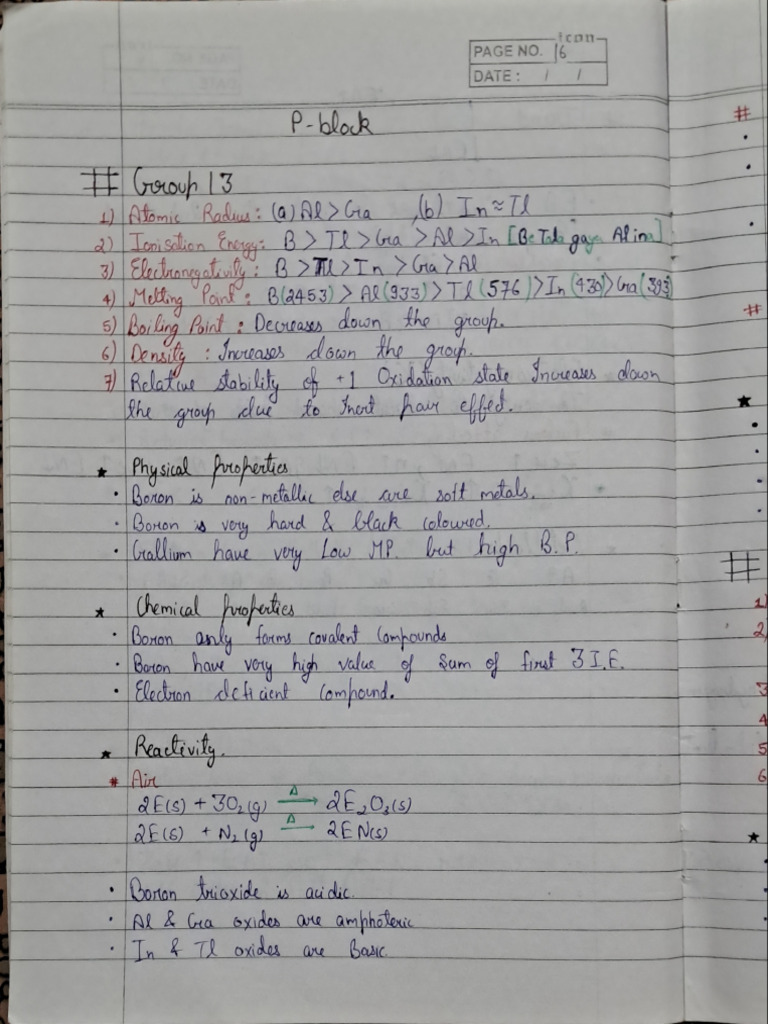 icon
PAGE NO. 16
DATE: / /
P-block
# Group 13
1) Atomic Radius: (a) Al > Ga , (b) In ≈ Tl
2) Ionisation Energy: B > Tl > Ga > Al > In [Be Tala gaya Al ina]
3) Electronegativity: B > Tl > In > Ga > Al
4) Melting Point: B(2453) > Al(933) > Tl(576) > In(430) > Ga(303)
5) Boiling Point: Decreases down the group.
6) Density: Increases down the group.
7) Relative stability of +1 Oxidation state Increases down
the group due to Inert pair effect.
★ Physical properties
• Boron is non-metallic else are soft metals.
• Boron is very hard & black coloured.
• Gallium have very Low MP. but high B.P.
★ Chemical properties
• Boron only forms covalent Compounds
• Boron have very high value of Sum of first 3 I.E.
• Electron deficient Compound.
★ Reactivity.
# Air
2E(s) + 3O₂(g) —Δ→ 2E₂O₃(s)
2E(s) + N₂(g) —Δ→ 2EN(s)
• Boron trioxide is acidic.
• Al & Ga oxides are amphoteric
• In & Tl oxides are Basic
#
#
★
#
1)
2)
3
4
5
6
★